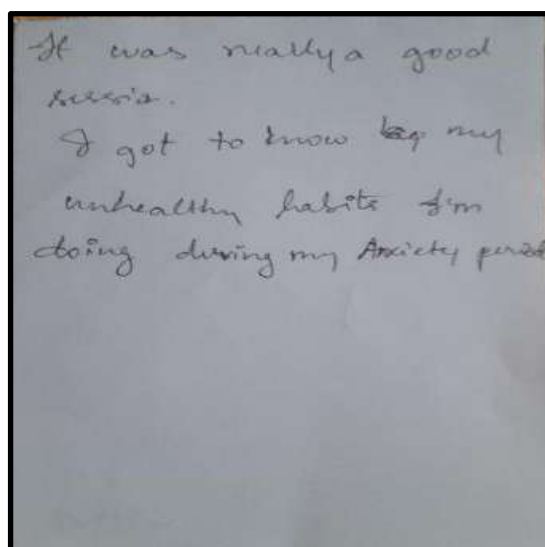 It was really a good
sessio.
I got to know my
unhealthy habits I'm
doing during my Anxiety period